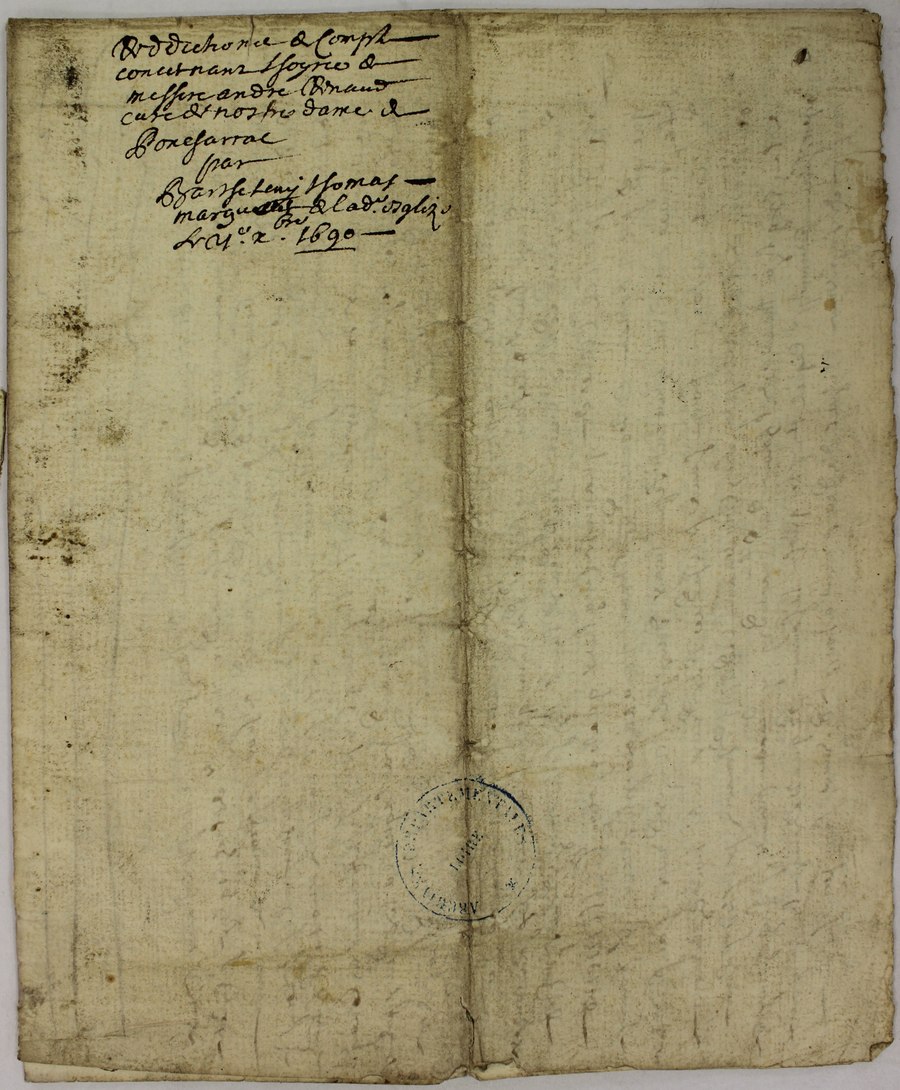 Redditionce de Compte
concernant l'hoyrie de
messire andre Renaud
curé de nostre dame de
Bonesarrat
par
Barthelemy Thomas
marguillier de lad. esglize
1690
ARCHIVES DÉPARTEMENTALES
LOIRE